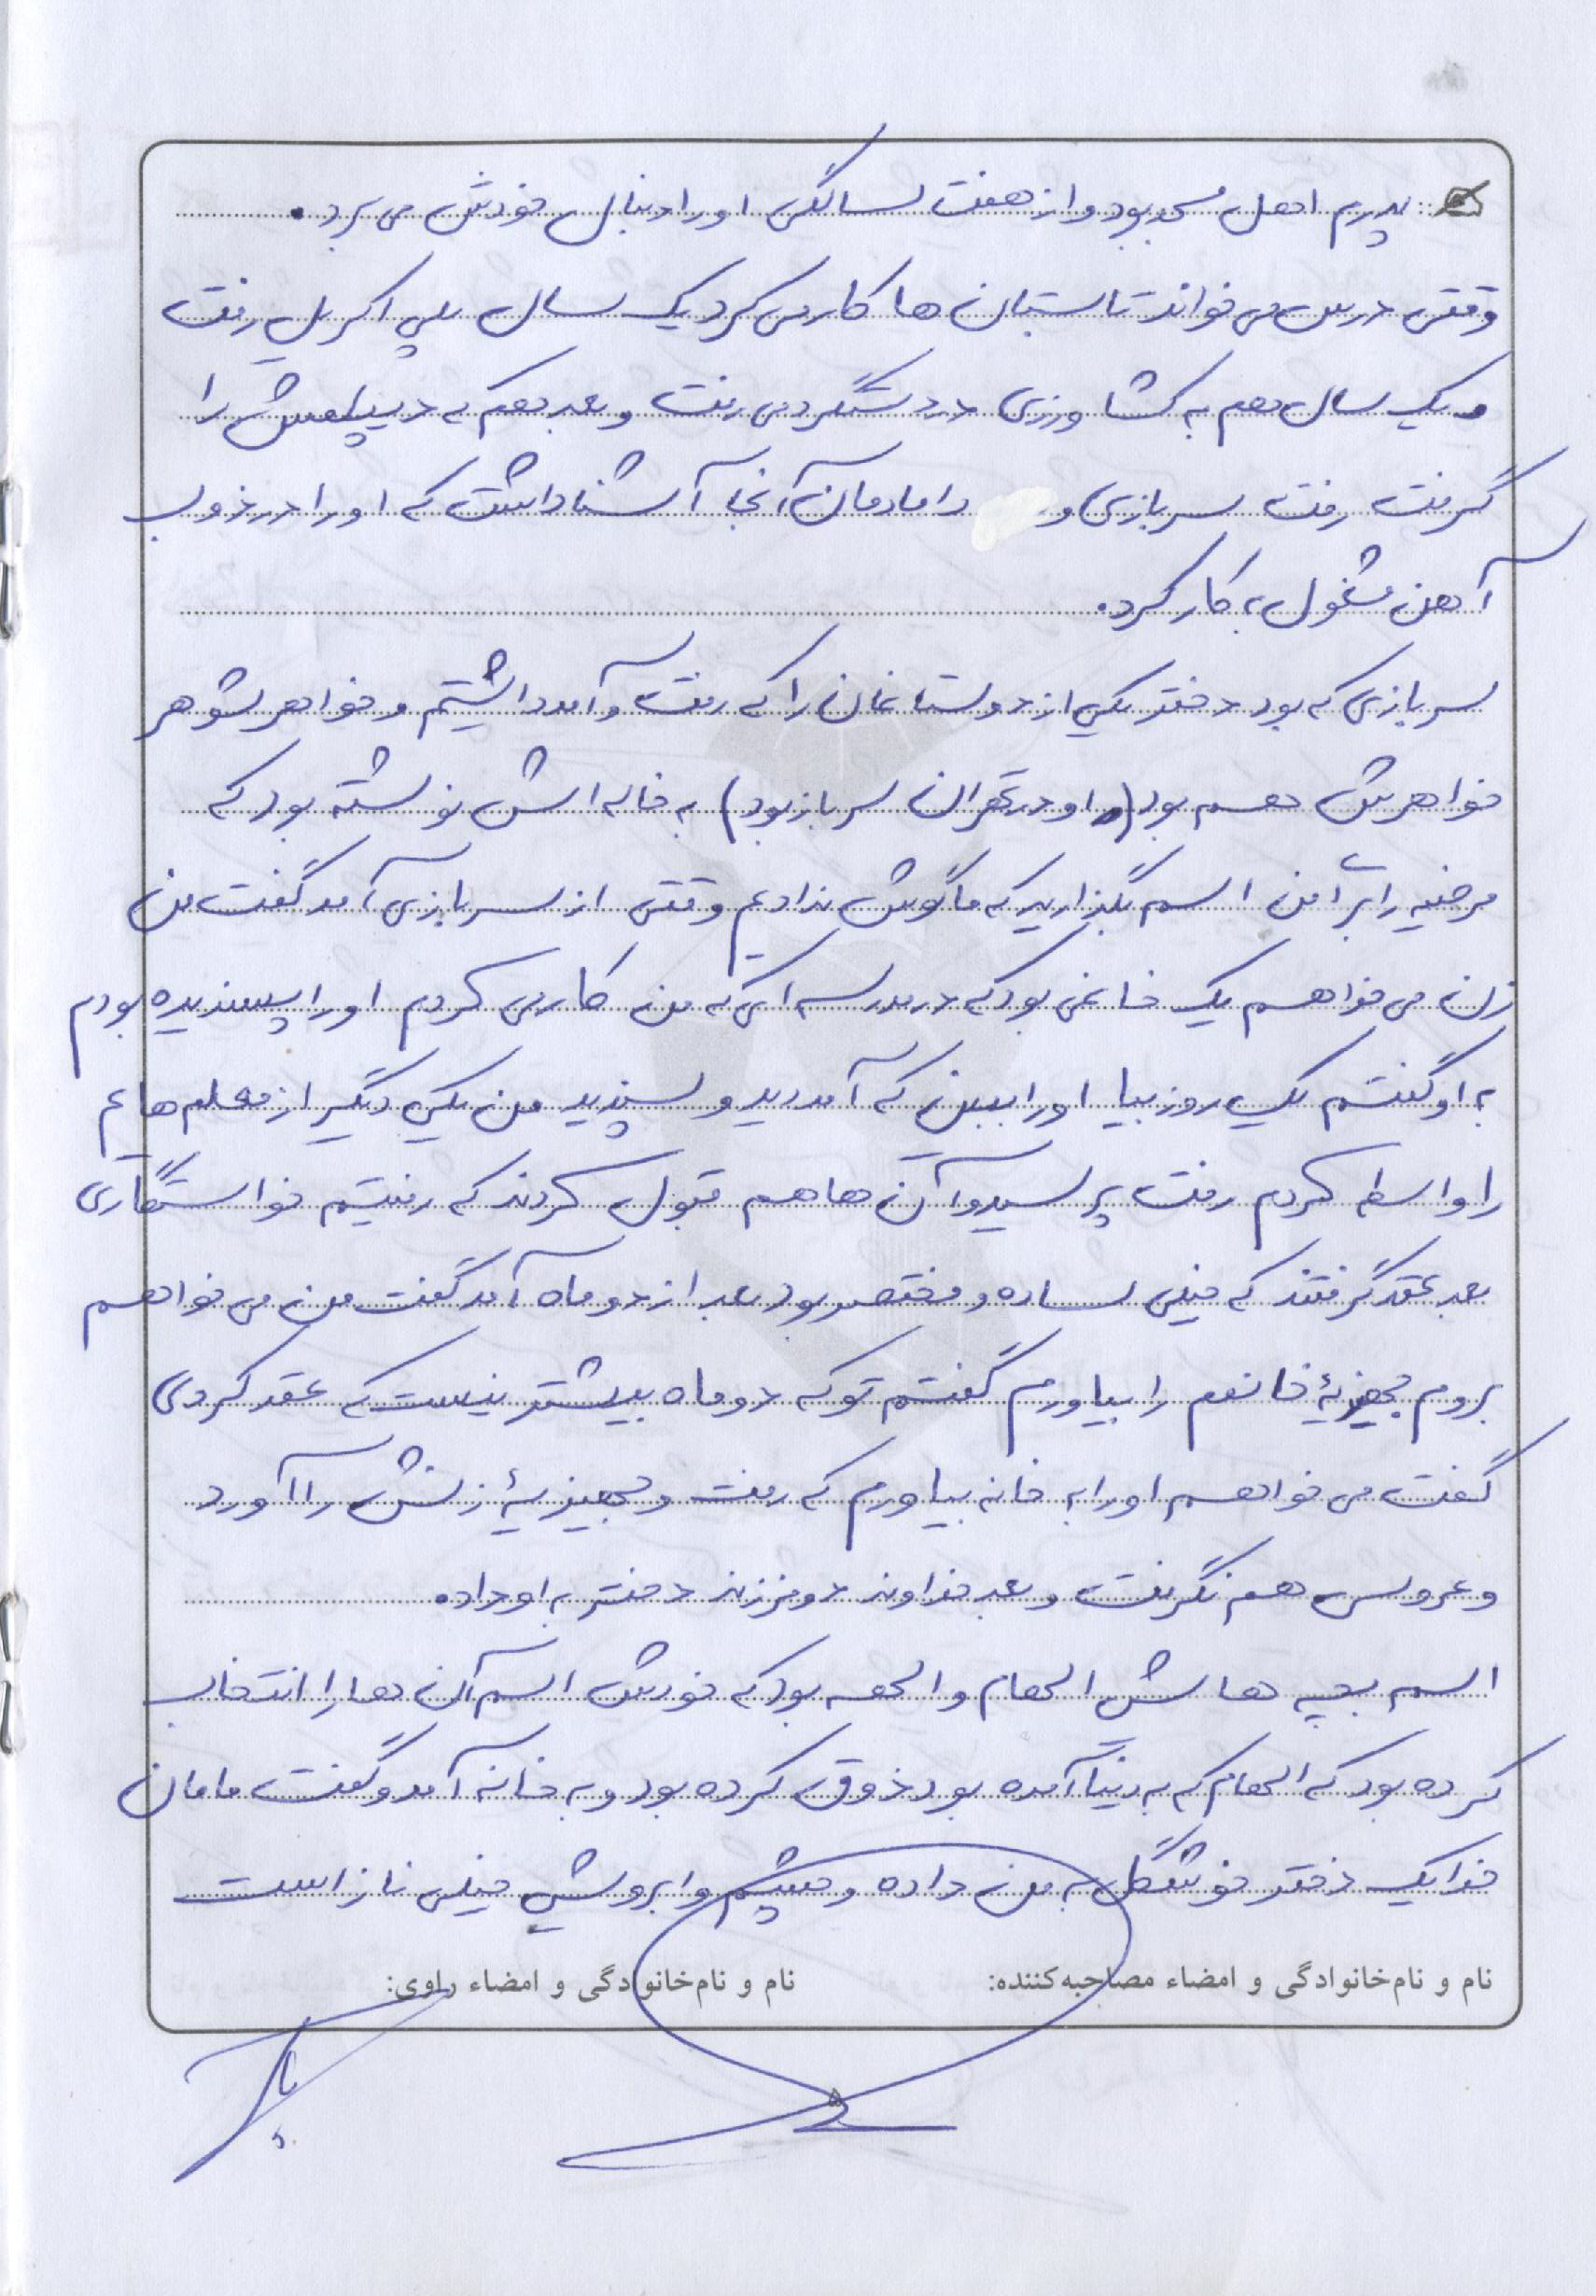 پدرم اهل مسجد بود و از هفت سالگی او را دنبال خودش می برد.
وقتی درس می خواند تابستان ها کار می کرد یک سال پلی اکریل رفت
و یک سال هم به کشاورزی در دستگرد می رفت و بعد هم که دیپلمش را
گرفت رفت سربازی و دامادمان آنجا آشنا داشت که او را در ذوب
آهن مشغول به کار کرد.
سربازی که بود دختر یکی از دوستانمان را که رفت و آمد داشتیم و خواهر شوهر
خواهرش هم بود (او در تهران سرباز بود) به خاله اش نوشته بود که
مرضیه را برای من اسم بگذارید که ما گوش ندادیم وقتی از سربازی آمد گفت من
زن می خواهم یک خانمی بود که در مدرسه ای که من کار می کردم او را پسندیده بودم
به او گفتم یک روز بیا او را ببین که آمد دید و پسندید من یکی دیگر از معلم هایم
را واسطه کردم رفت پرسید و آن ها هم قبول کردند که رفتیم خواستگاری
بعد عقد گرفتند که خیلی ساده و مختصر بود بعد از دو ماه آمد گفت من می خواهم
بروم جهیزیهٔ خانمم را بیاورم گفتم تو که دو ماه بیشتر نیست که عقد کردی
گفت می خواهم او را به خانه بیاورم که رفت و جهیزیهٔ زنش را آورد
و عروسی هم نگرفت و بعد خداوند دو فرزند دختر به او داد.
اسم بچه هایش الهام و الهه بود که خودش اسم آن ها را انتخاب
کرده بود که الهام که به دنیا آمده بود ذوق کرده بود و به خانه آمد و گفت مامان
خدا یک دختر خوشگل به من داده و چشم و ابروش خیلی ناز است
نام و نام‌خانوادگی و امضاء مصاحبه‌کننده: نام و نام‌خانوادگی و امضاء راوی:
۵